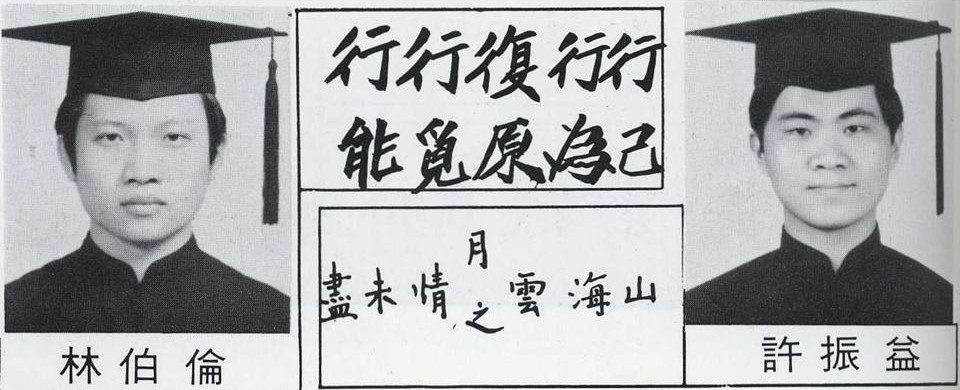 行行復行行
能覓原為己
山海雲月之情未盡
林伯倫
許振益